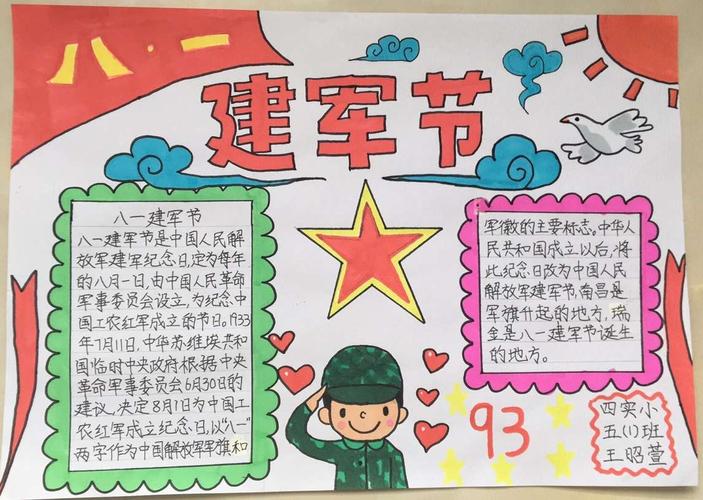 八·一
建军节
八一建军节
八一建军节是中国人民解
放军建军纪念日,定为每年
的八月一日,由中国人民革命
军事委员会设立,为纪念中
国工农红军成立的节日。1933
年7月11日,中华苏维埃共和
国临时中央政府根据中央
革命军事委员会6月30日的
建议,决定8月1日为中国工
农红军成立纪念日,以“八一”
两字作为中国解放军军旗和
军徽的主要标志。中华人
民共和国成立以后,将
此纪念日改为中国人民
解放军建军节,南昌是
军旗升起的地方,瑞
金是八一建军节诞生
的地方。
93
四实小
五(1)班
王昭萱